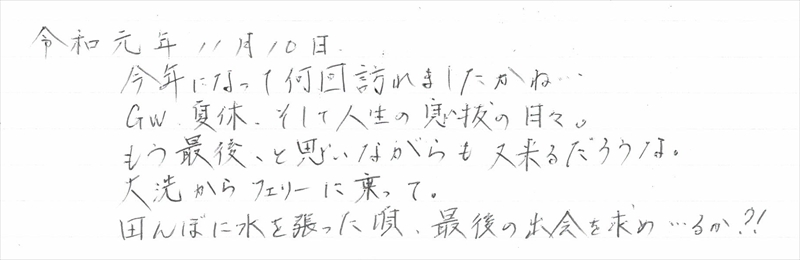 令和元年 11月10日.
今年になって何回訪れましたかね…
GW、夏休、そして人生の息抜の日々。
もう最後、と思いながらも又来るだろうな。
大洗からフェリーに乗って。
田んぼに水を張った頃、最後の出会を求め…るか?!